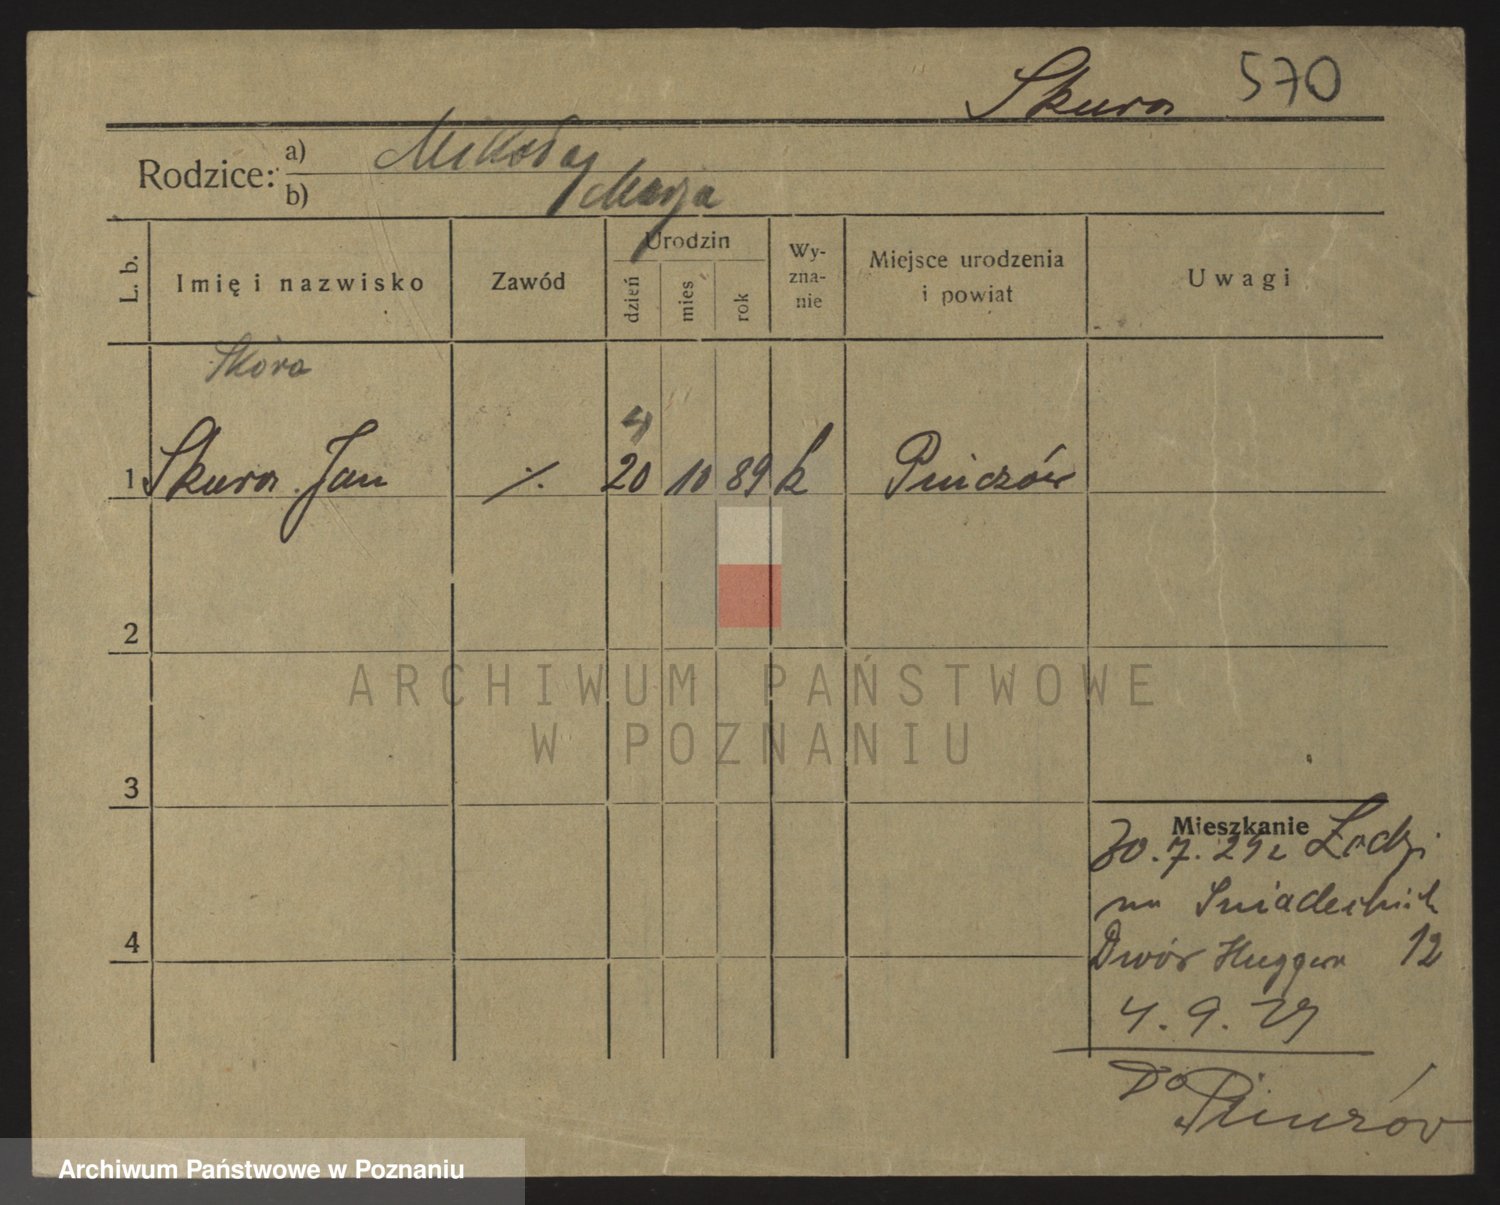 Skura 570
Rodzice: a) Mikołaj
b) Marja
L. b. Imię i nazwisko Zawód Urodzin dzień mies rok Wy-zna-nie Miejsce urodzenia i powiat Uwagi
Skóra
4
1 Skura Jan ./. 20 10 89 k Pinczów
2
ARCHIWUM PAŃSTWOWE
W POZNANIU
3
Mieszkanie
30.7.29 z Łodzi
na Śniadeckich
4
Dwór Huggera 12
4.9.29
Do Pinczów
Archiwum Państwowe w Poznaniu